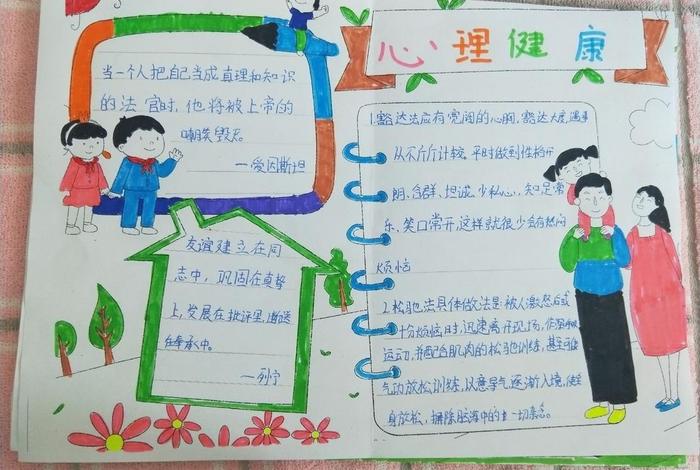 心理健康
当一个人把自己当成真理和知识
的法官时,他将被上帝的
嘲笑毁灭。
—爱因斯坦
友谊建立在同
志中,巩固在真挚
上,发展在批评里,断送
在奉承中。
—列宁
1.豁达法应有宽阔的心胸,豁达大度,遇事
从不斤斤计较,平时做到性格开
朗、合群、坦诚、少私心、知足常
乐、笑口常开,这样就很少会有愁闷
烦恼
2.松驰法具体做法是:被人激怒后或
十分烦恼时,迅速离开现场,作深呼吸
运动,并配合肌肉的松驰训练,甚至可做
气功放松训练,以意导气,逐渐入境,使全
身放松,摒除脑海中的一切杂念。